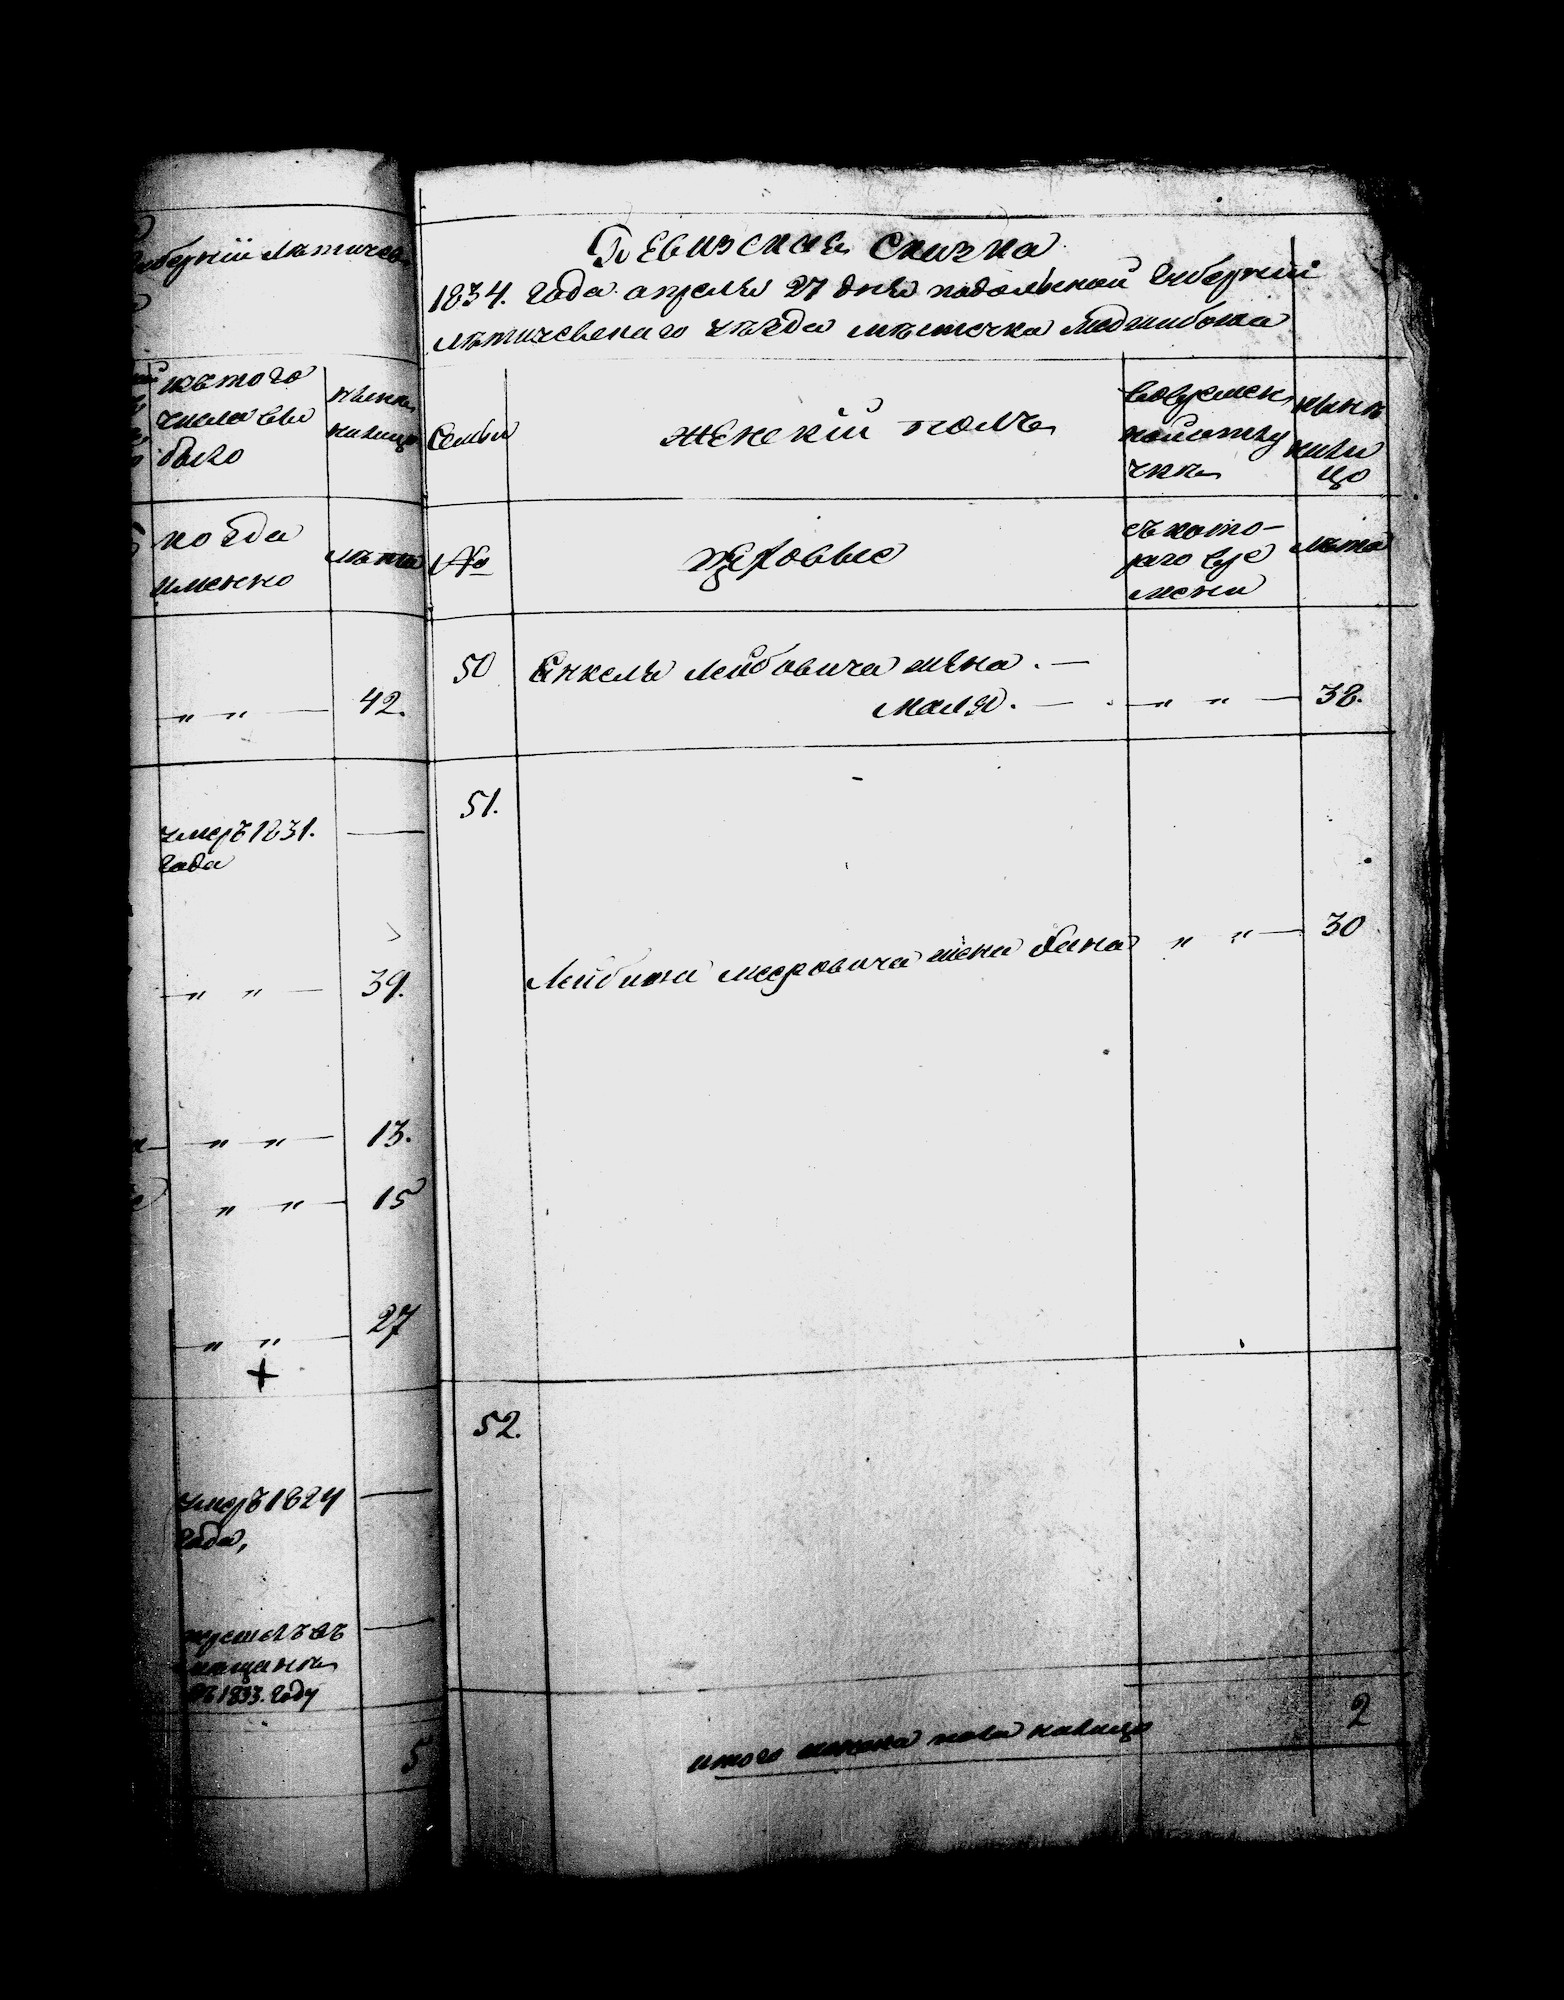 губерніи Летичев
изъ того
числа вы
было
нынѣ
налицо
когда
именно
лѣта
" " — 42.
умеръ 1831. —
года
" " — 39.
" " — 13.
" " — 15
" " — 27
+
умеръ 1824 —
года,
въ 1833. году
5
Ревизская Сказка
1834. года апреля 27 дня подольской губерніи
летичевскаго уѣзда мѣстечка Меджибожа
Семьи
женскій полъ
вовремен
нойотлу
чкѣ
нынѣ
нали
цо
№
съ кото-
раго вре
мени
лѣта
50 Енкеля Лейбовича жена . —
маля . — " " — 38.
51.
Лейбиша мееровича жена хана " " — 30
52.
итого женска пола налицо 2